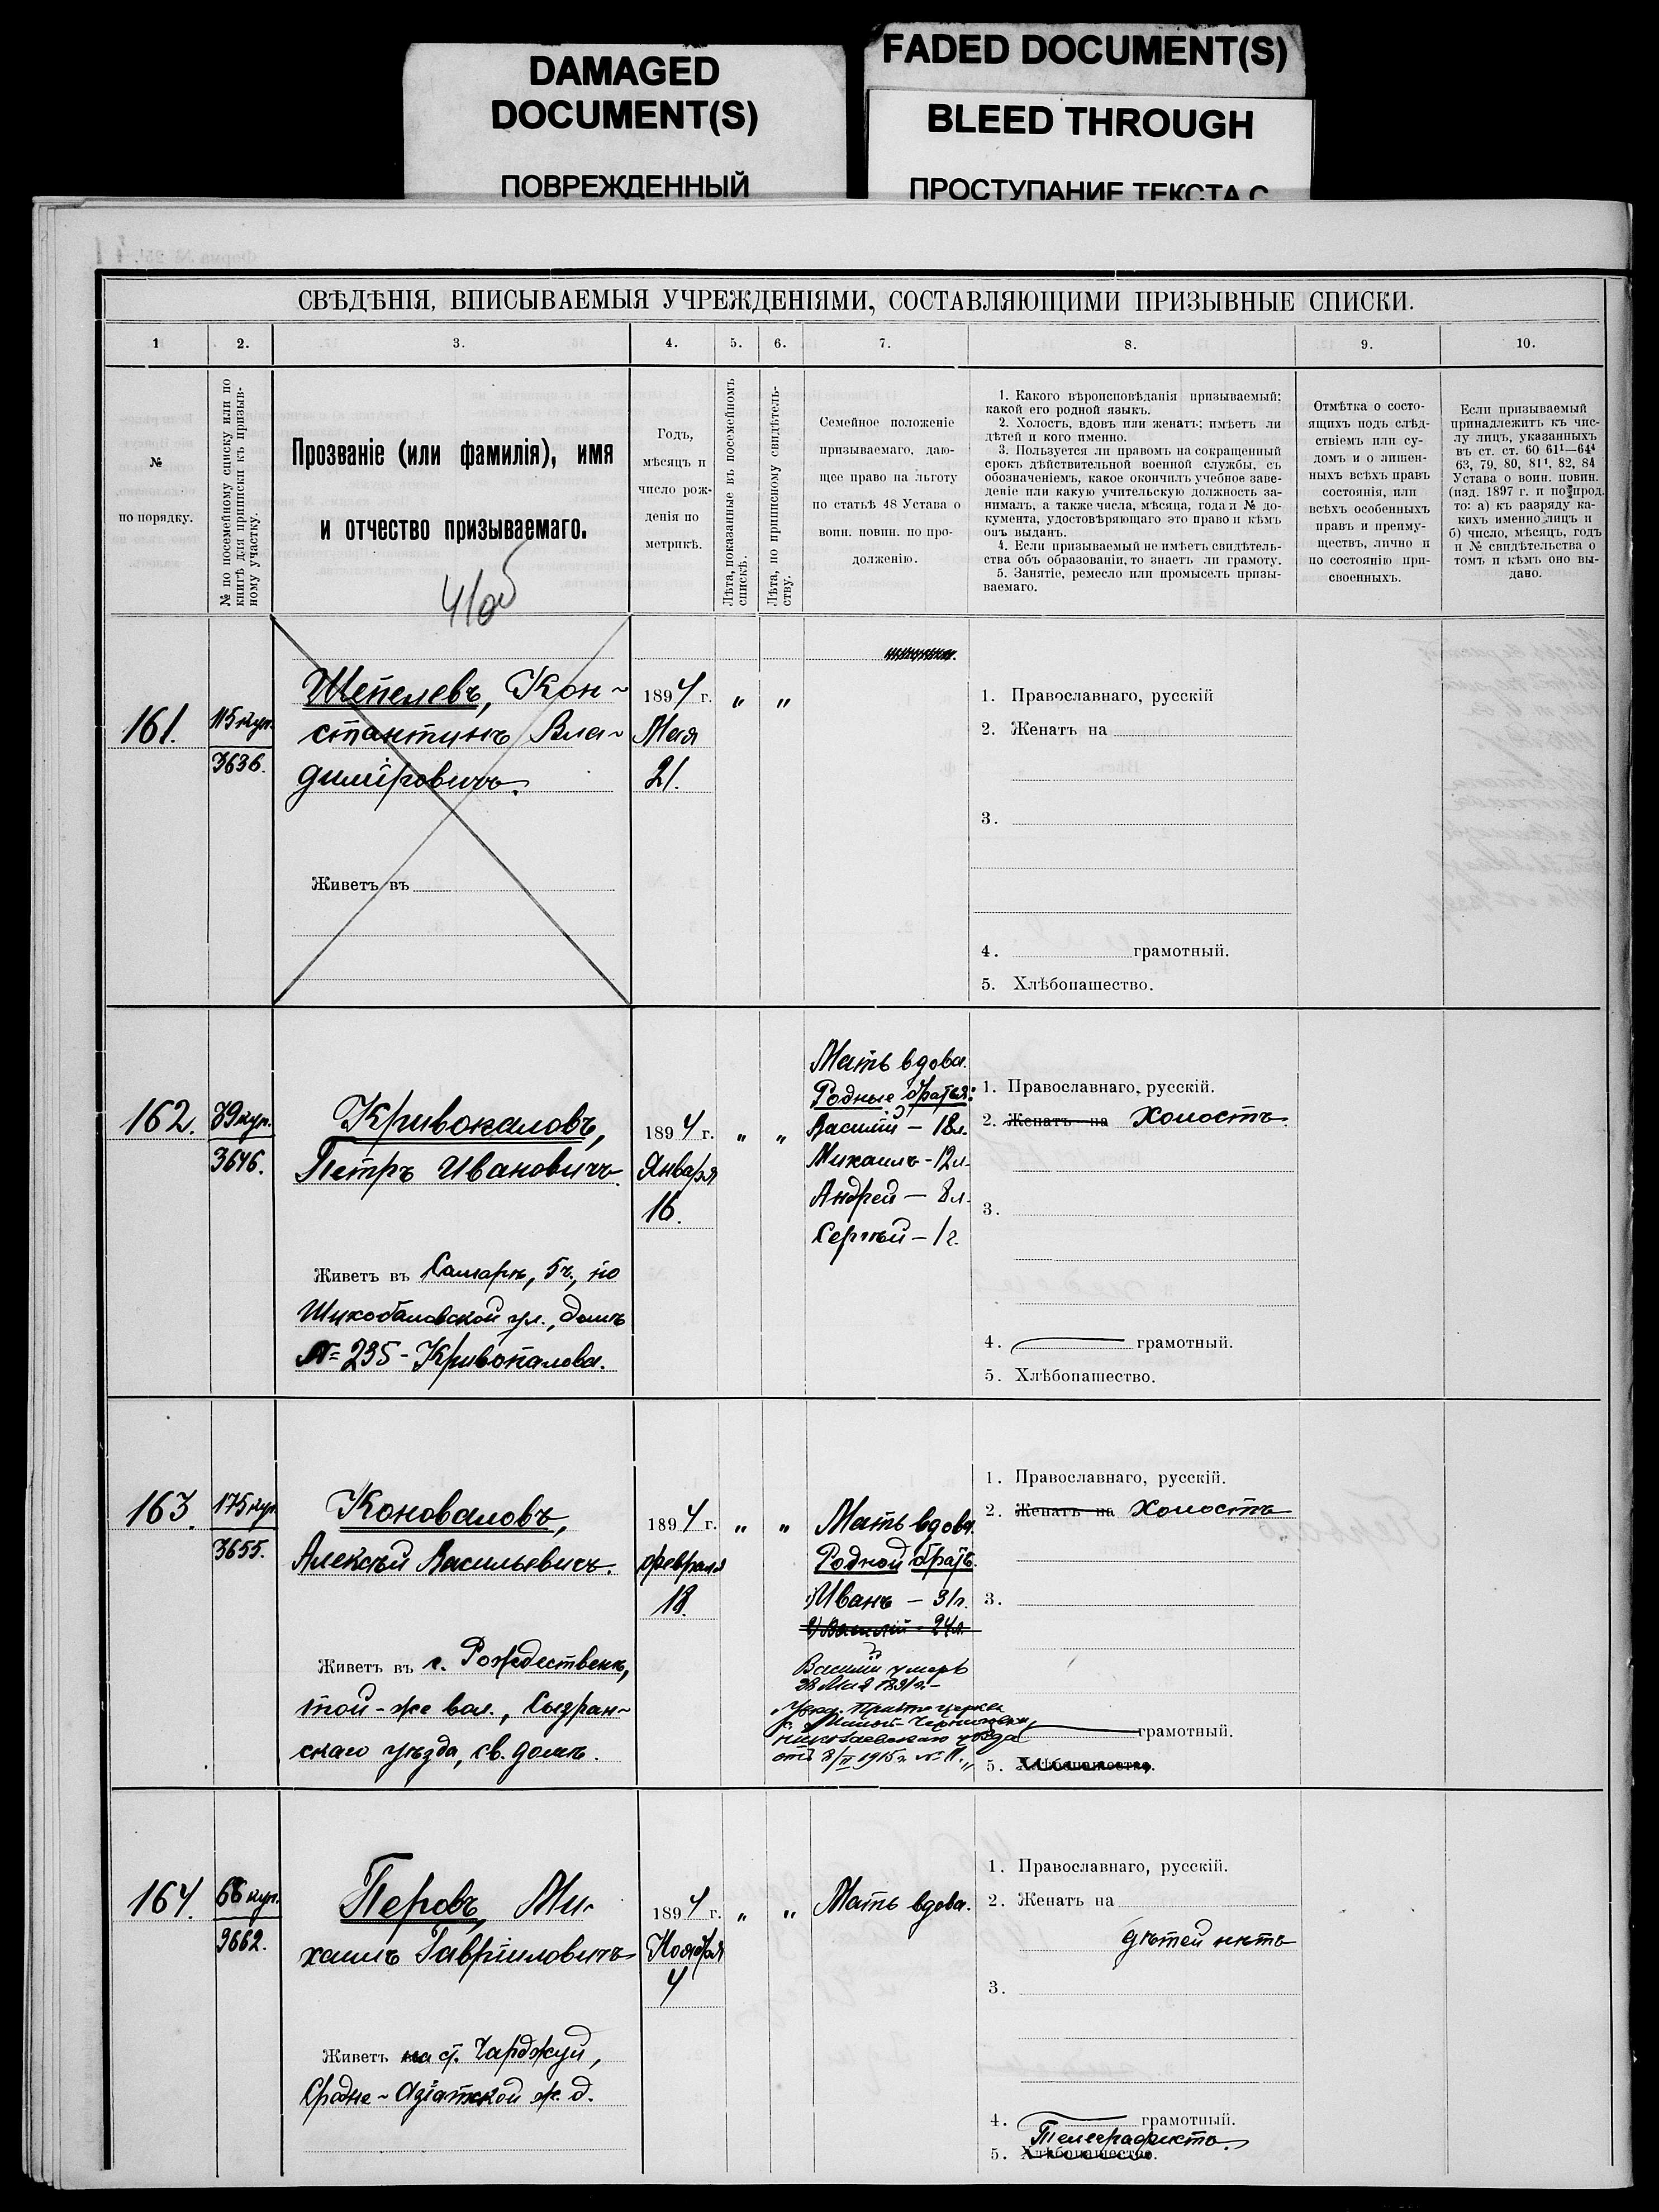 DAMAGED
DOCUMENT(S)
ПОВРЕЖДЕННЫЙ
FADED DOCUMENT(S)
BLEED THROUGH
ПРОСТУПАНИЕ ТЕКСТА С
СВѢДѢНІЯ, ВПИСЫВАЕМЫЯ УЧРЕЖДЕНІЯМИ, СОСТАВЛЯЮЩИМИ ПРИЗЫВНЫЕ СПИСКИ.
1 2. 3. 4. 5. 6. 7. 8. 9. 10.
№
по порядку.
№ по посемейному списку или по
книгѣ для приписки къ призыв-
ному участку.
Прозваніе (или фамилія), имя
и отчество призываемаго.
Годъ,
мѣсяцъ и
число рож-
денія по
метрикѣ.
Лѣта, показанные въ посемейномъ
спискѣ.
Лѣта, по приписному свидѣтель-
ству.
Семейное положеніе
призываемаго, даю-
щее право на льготу
по статьѣ 48 Устава о
воин. повин. по про-
долженію.
1. Какого вѣроисповѣданія призываемый;
какой его родной языкъ.
2. Холостъ, вдовъ или женатъ; имѣетъ ли
дѣтей и кого именно.
3. Пользуется ли правомъ на сокращенный
срокъ дѣйствительной военной службы, съ
обозначеніемъ, какое окончилъ учебное заве-
деніе или какую учительскую должность за-
нималъ, а также числа, мѣсяца, года и № до-
кумента, удостовѣряющаго это право и кѣмъ
онъ выданъ.
4. Если призываемый не имѣетъ свидѣтель-
ства объ образованіи, то знаетъ ли грамоту.
5. Занятіе, ремесло или промыселъ призы-
ваемаго.
Отмѣтка о состо-
ящихъ подъ слѣд-
ствіемъ или су-
домъ и о лишен-
ныхъ всѣхъ правъ
состоянія, или
всѣхъ особенныхъ
правъ и преиму-
ществъ, лично и
по состоянію при-
своенныхъ.
Если призываемый
принадлежитъ къ чис-
лу лицъ, указанныхъ
въ ст. ст. 60 61¹—64⁴
63, 79, 80, 81¹, 82, 84
Устава о воин. повин.
(изд. 1897 г. и по прод.
то: а) къ разряду ка-
кихъ именно лицъ и
б) число, мѣсяцъ, годъ
и № свидѣтельства о
томъ и кѣмъ оно вы-
дано.
161.
115 куп.
3636.
Шепелевъ, Кон-
стантинъ Вла-
диміровичъ.
Живетъ въ
1894 г.
Мая
21.
„ „
1. Православнаго, русскій
2. Женатъ на
3.
4. грамотный.
5. Хлѣбопашество.
162.
39 куп.
3646.
Кривокаловъ,
Петръ Ивановичъ.
Живетъ въ Самарѣ, 5 ч., по
Шихобаловской ул., домъ
№ 235 - Кривопалова.
1894 г.
Января
16.
„ „
Мать вдова.
Родные братья:
Василій — 18 л.
Михаилъ - 12 л.
Андрей — 8 л.
Сергѣй — 1 г.
1. Православнаго, русскій.
2. Женатъ на Холостъ.
3.
4. грамотный.
5. Хлѣбопашество.
163.
175 куп.
3655.
Коноваловъ,
Алексѣй Васильевичъ.
Живетъ въ с. Рождественѣ,
той-же вол., Сызран-
скаго уѣзда, св. домъ.
1894 г.
Февраля
18.
„ „
Мать вдова.
Родной братъ.
1) Иванъ — 31 г.
2) Василій - 24 л.
Василій умеръ
28 Мая 1891 г. —
1. Православнаго, русскій.
2. Женатъ на Холостъ
3.
грамотный.
5. Хлѣбопашество.
164.
66 куп.
3662.
Перовъ, Ми-
хаилъ Гавріиловичъ
Живетъ на ст. Чарджуй,
Средне-Азіатской ж. д.
1894 г.
Ноября
4
„ „
Мать вдова.
1. Православнаго, русскій.
2. Женатъ на
дѣтей нѣтъ
3.
4. грамотный.
Телеграфистъ.
5. Хлѣбопашество.